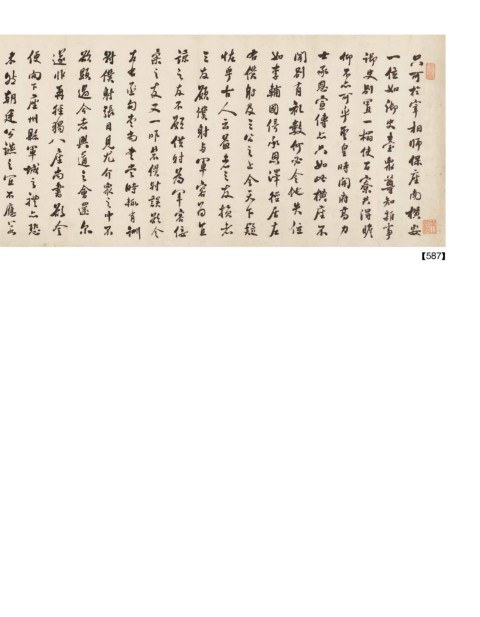 只可於宰相師保座南橫安
一位如御史臺眾尊知雜事
御史別置一榻使百寮共得瞻
仰不亦可乎聖皇時開府高力
士承恩宣傳亦只如此橫座不
聞別有禮數何必令他失位
如李輔國倚承恩澤徑居左
右僕射及三公之上令天下疑
怪乎古人云益者三友損者
三友願僕射與軍容為直
諒之友不願僕射為軍容佞
柔之友又一昨裴僕射誤欲令
左右丞勾當尚書當時輒有酬
對僕射張目見尤介眾之中不
欲顯過今者興道之會還爾
遂非再經獨八座尚書欲令
便向下座州縣軍城之禮亦恐
未然朝廷公讌之宜不應若
【587】